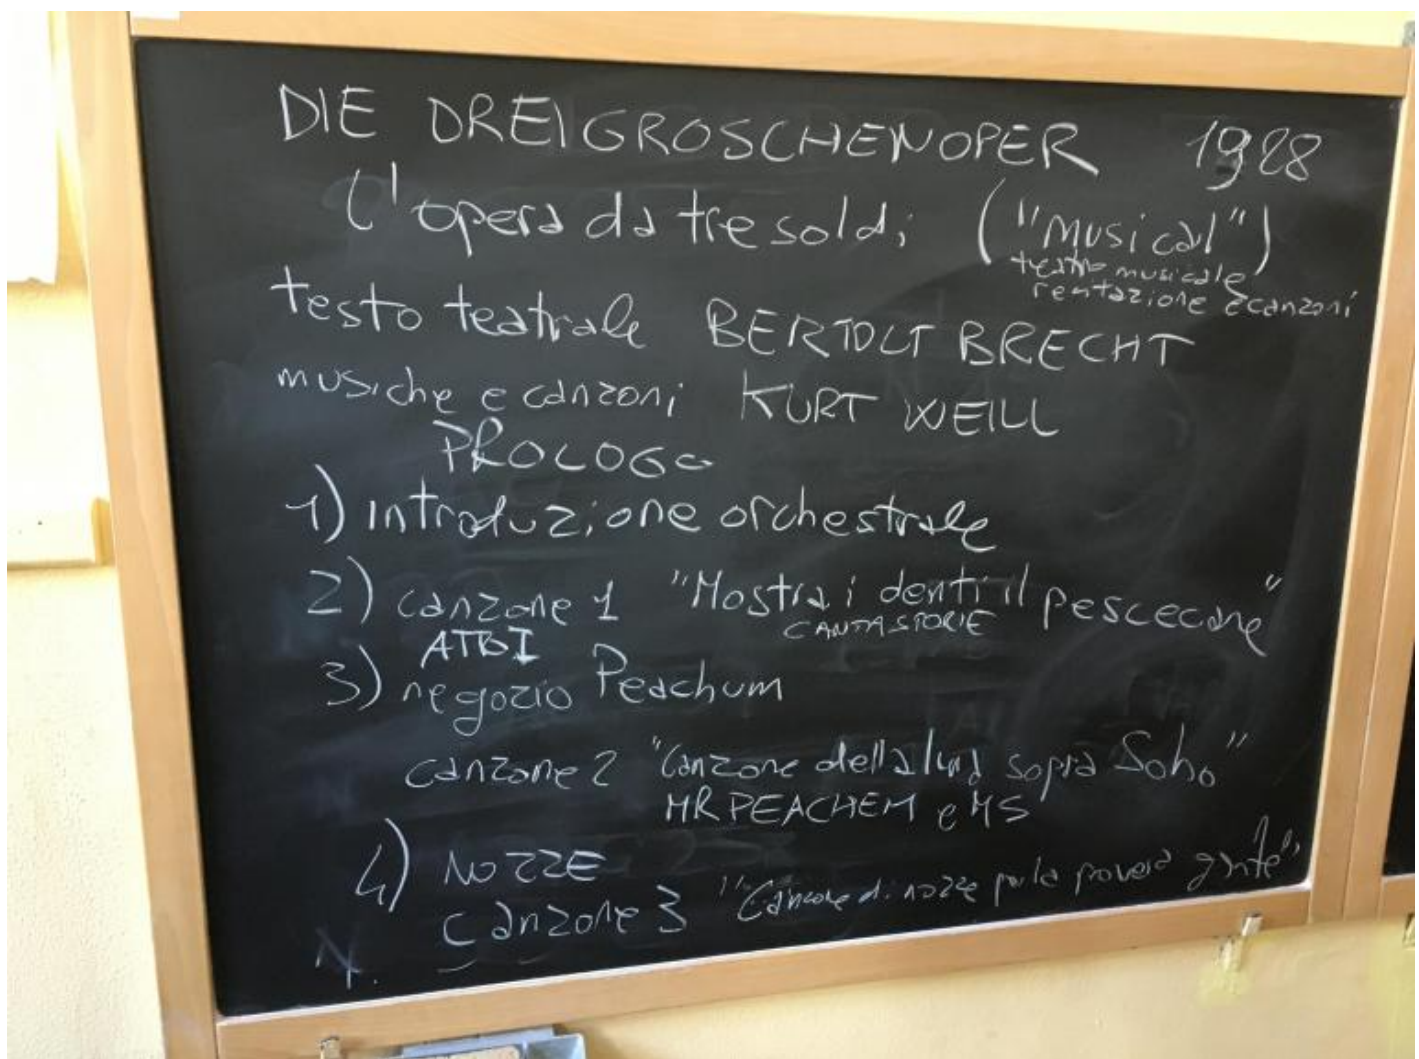 DIE DREIGROSCHENOPER 1928
l'opera da tre soldi ("musical")
teatro musicale
reutazione e canzoni
testo teatrale BERTOLT BRECHT
musiche e canzoni KURT WEILL
PROLOGO
1) introduzione orchestrale
2) canzone 1 "Mostra i denti il pescecane"
CANTASTORIE
3) negozio Peachum
canzone 2 "Canzone della luna sopra Soho"
MR PEACHEM e MS
4) NOZZE
canzone 3 "Canzone di nozze per la povera gente"